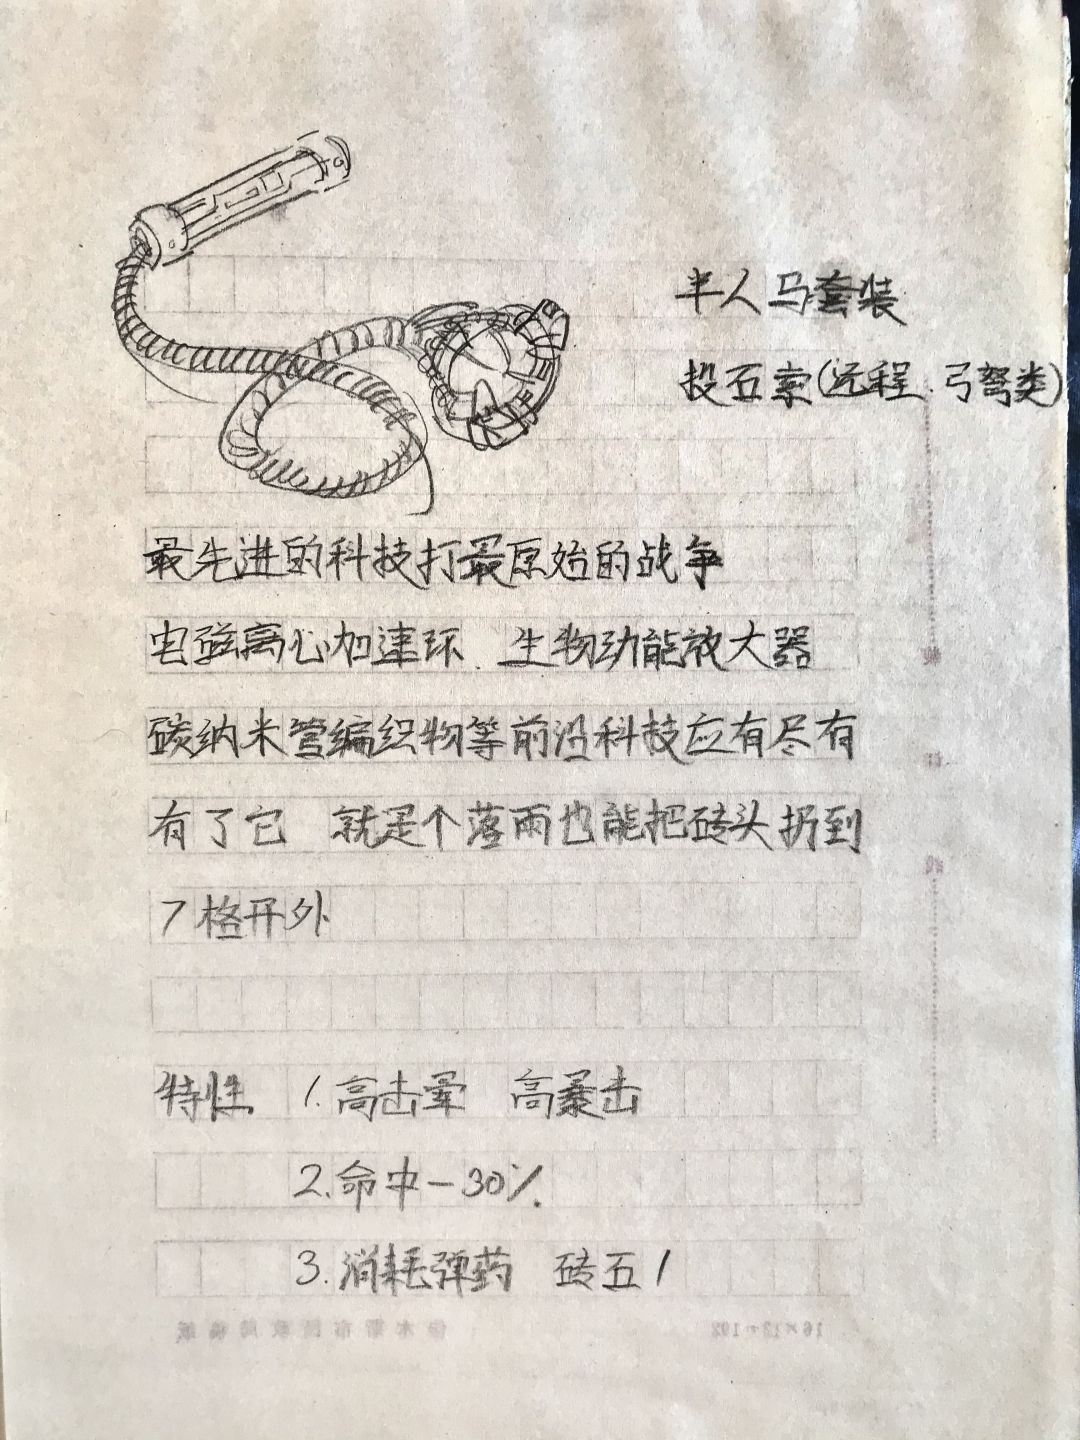 半人马套装
投石索(远程.弓弩类)
最先进的科技打最原始的战争
电磁离心加速环.生物动能放大器
碳纳米管编织物等前沿科技应有尽有
有了它 就是个落雨也能把砖头扔到
7格开外
特性 1.高击晕 高暴击
2.命中-30%.
3.消耗弹药 砖瓦1
16×12=192